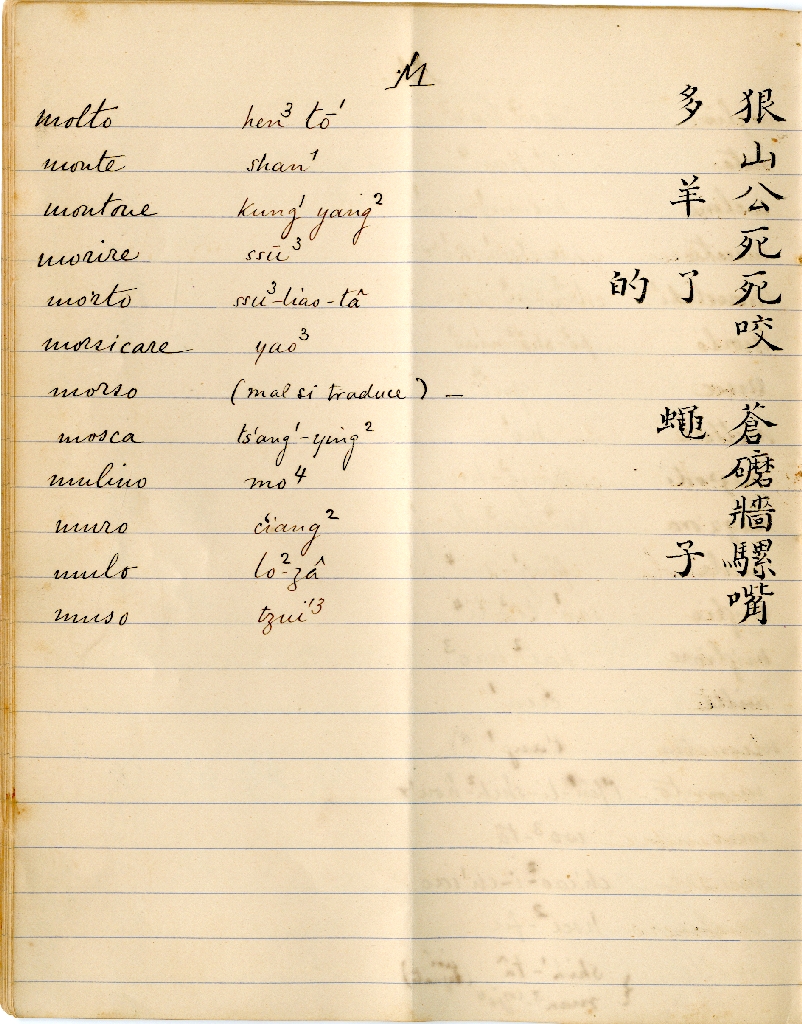 M
molto hen³ tō¹ 多 狠
monte shan¹ 山
montone kung¹ yang² 羊 公
morire ssŭ³ 死
morto ssŭ³-liao-tâ 的 了 死
morsicare yao³ 咬
morso (mal si traduce) —
mosca ts'ang¹-ying² 蠅 蒼
mulino mo⁴ 礳
muro c'iang² 牆
mulo lo²-zâ 子 騾
muso tzui'³ 嘴